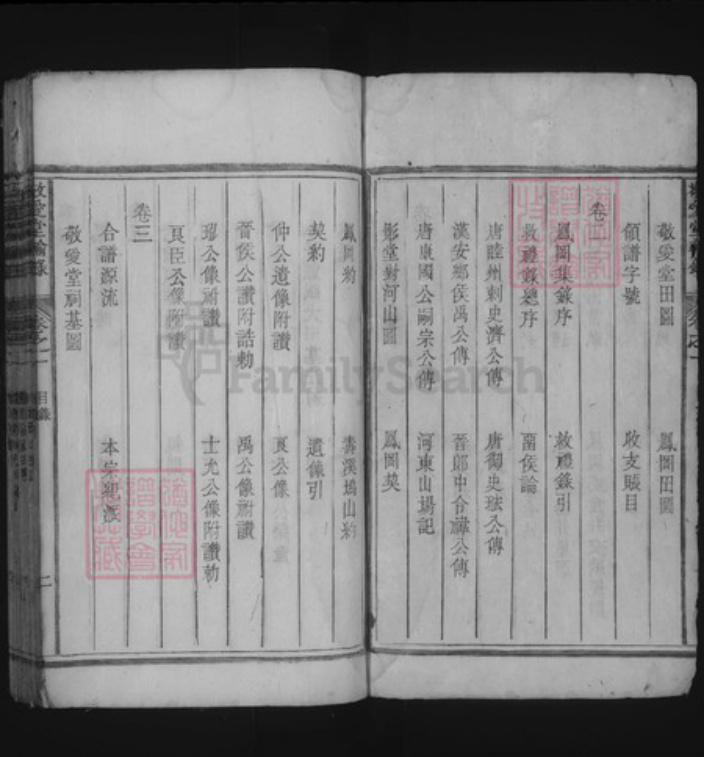 敬愛堂田圖 鳳岡田圖
領譜字號 收支賬目
卷二
鳳岡集錄序 敘禮錄引
敘禮錄總序 留侯論
唐睦州刺史濟公傳 唐御史
漢安鄉侯禹公傳 晉郎中令禕公傳
唐康國公嗣宗公傳 河東山場記
影堂對河山圖 鳳岡契
鳳岡約 溪塢山約
契約 遺像引
仲公遺像附讚 良公像
晉侯公讚附誥勅 禹公像附讚
公像附讚 士尤公像附讚勅
良臣公像附讚
卷三
合譜源流 本宗
敬愛堂祠基圖
敬愛堂
目錄
二
FamilySearch